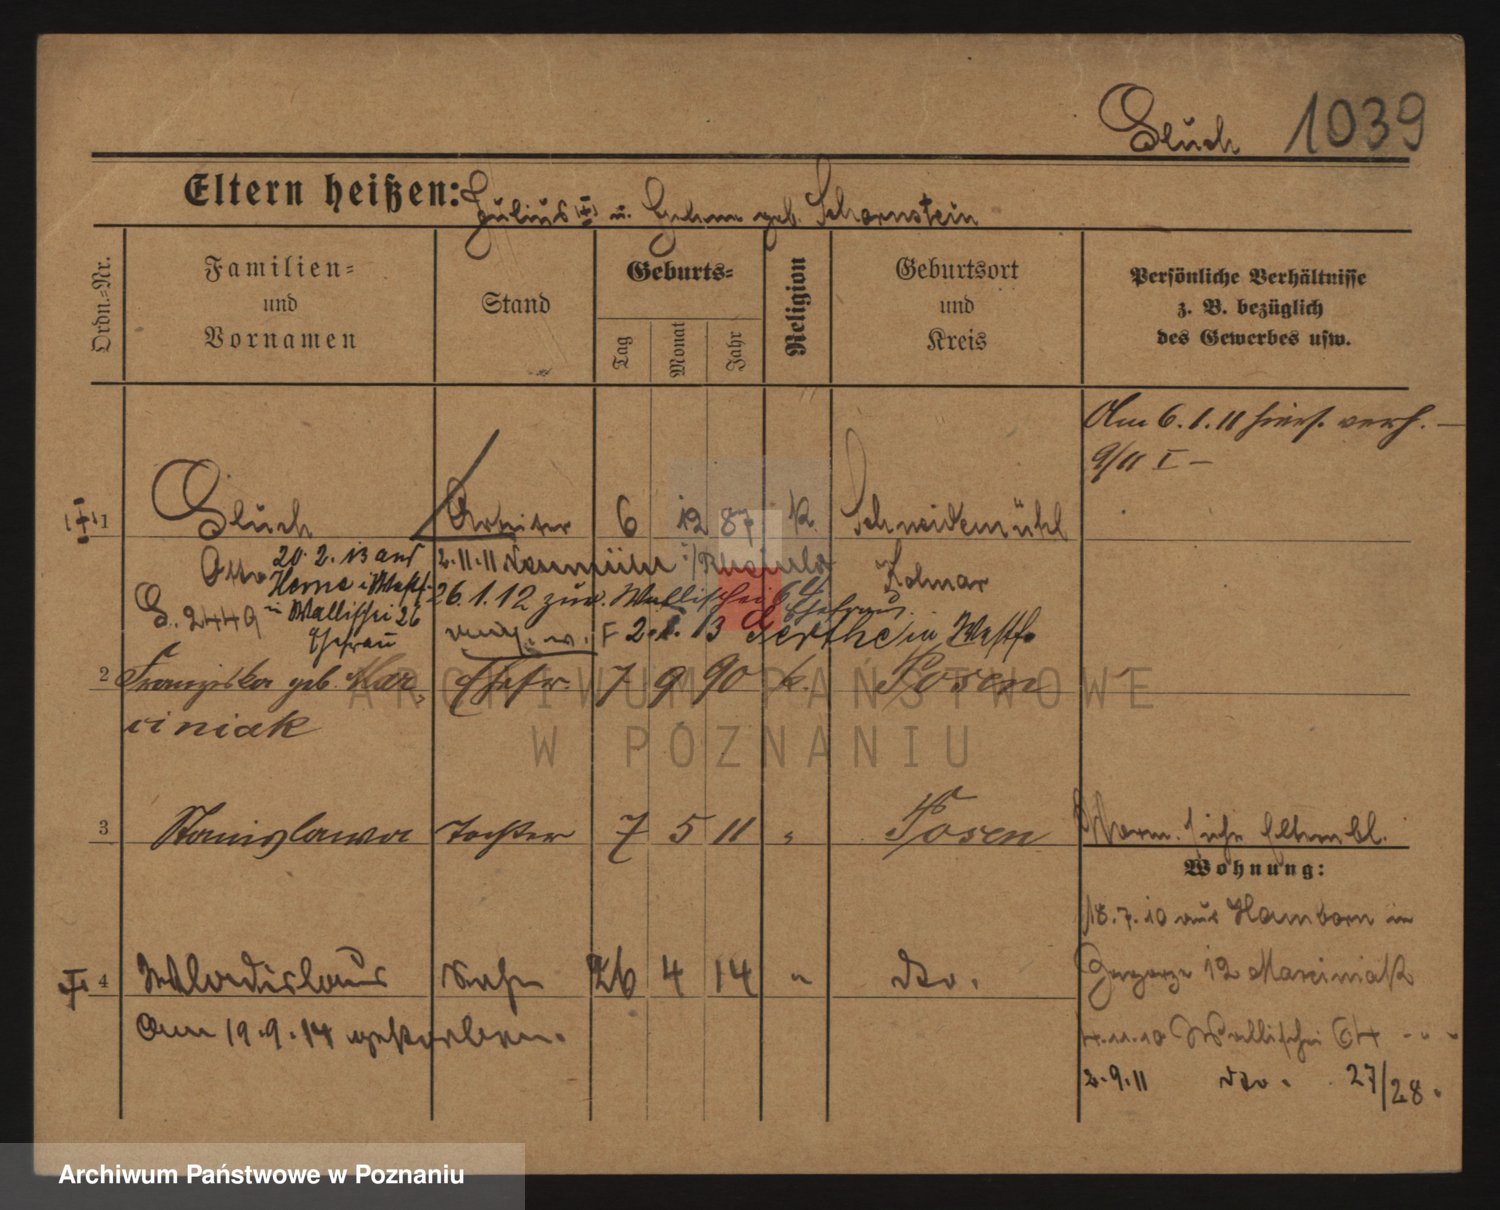 Gluch 1039
Eltern heißen: Julius u. geb. Schornstein
Ordn.-Nr.
Familien-
und
Vornamen
Stand
Geburts-
Tag
Monat
Jahr
Religion
Geburtsort
und
Kreis
Persönliche Verhältnisse
z. B. bezüglich
des Gewerbes usw.
Am 6.1.11 verh. —
9/11 I —
1 Gluch Arbeiter 6 12 87 k Schneidemühl
Otto 20.2.13 aus 2.11.11 Neumühl Kolmar
Herne i/Westf. 26.1.12 zur. Wallischei 64
G. 2449 Wallischei 26 Ehefrau.
Ehefrau 13 Gerthe in Westf.
2 Franziska geb. Mar- Ehefr. 7 9 90 k. Posen
ciniak
3 Stanislawa Tochter 7 5 11 " Posen
Wohnung:
18.7.10 aus Hamborn in
12 Marciniak
4 Wladislaus Sohn 26 4 14 " dto.
Am 19.9.14 gestorben.
4.11.10 Wallischei 64 - - -
2.9.11 dto. 27/28.
ARCHIWUM PAŃSTWOWE
W POZNANIU
Archiwum Państwowe w Poznaniu